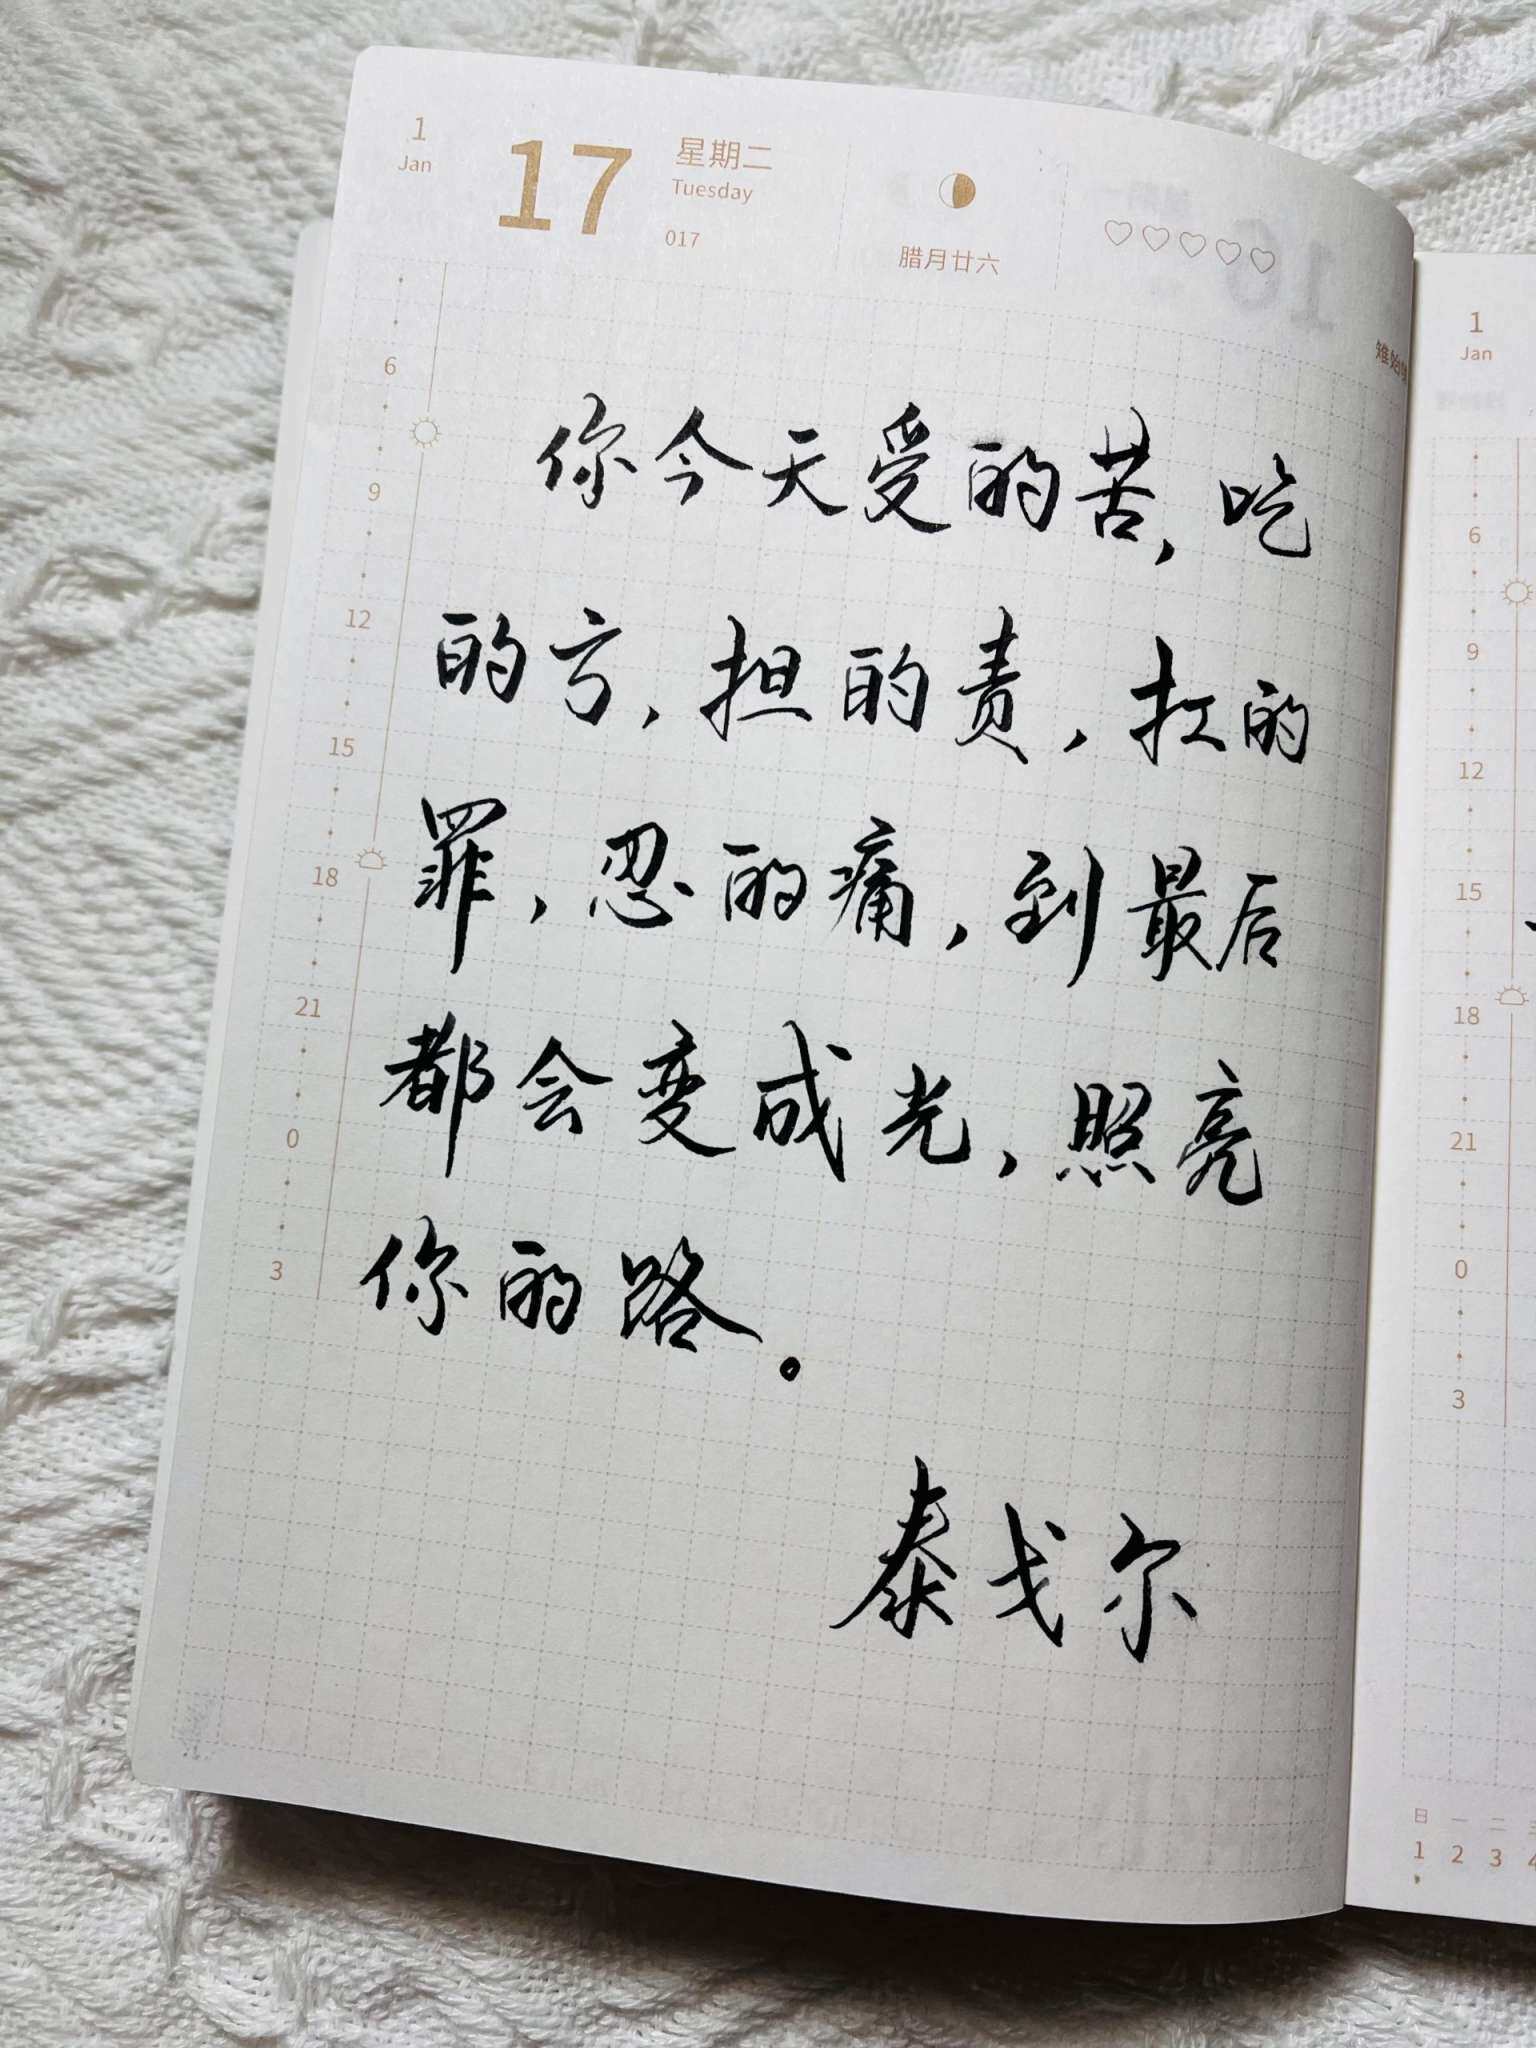 1
Jan
17
星期二
Tuesday
017
腊月廿六
6
9
12
15
18
21
0
3
你今天受的苦，吃
的亏，担的责，扛的
罪，忍的痛，到最后
都会变成光，照亮
你的路。
泰戈尔
1
Jan
6
9
12
15
18
21
0
3
日 一 二
1 2 3 4